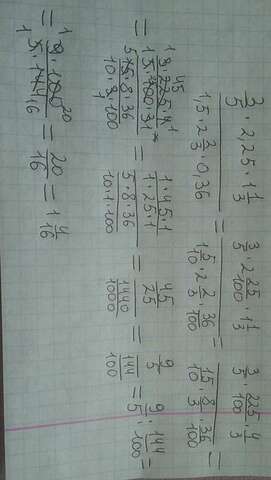 3/5 · 2,25 · 1 1/3 / 1,5 · 2 2/3 · 0,36 = 3/5 · 2 25/100 · 1 1/3 / 1 5/10 · 2 2/3 · 36/100 = 3/5 · 225/100 · 4/3 / 15/10 · 8/3 · 36/100 =
= 3·225·4 / 5·100·3 / 15·8·36 / 10·3·100 = 1·45·1 / 1·25·1 / 5·8·36 / 10·1·100 = 45/25 / 1440/1000 = 9/5 / 144/100 = 9/5 : 144/100 =
= 9·100 / 5·144 = 20/16 = 1 4/16